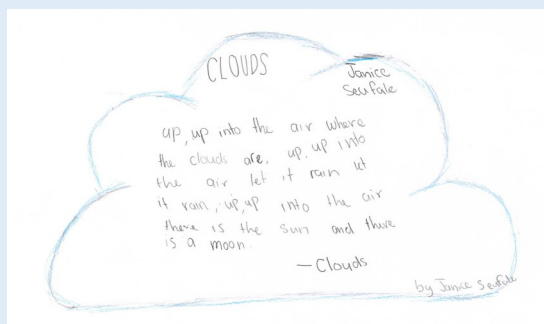 CLOUDS
Janice
Seufale
up, up into the air where
the clouds are, up, up into
the air let it rain let
it rain, up, up into the air
there is the sun and there
is a moon.
— Clouds
by Janice Seufale